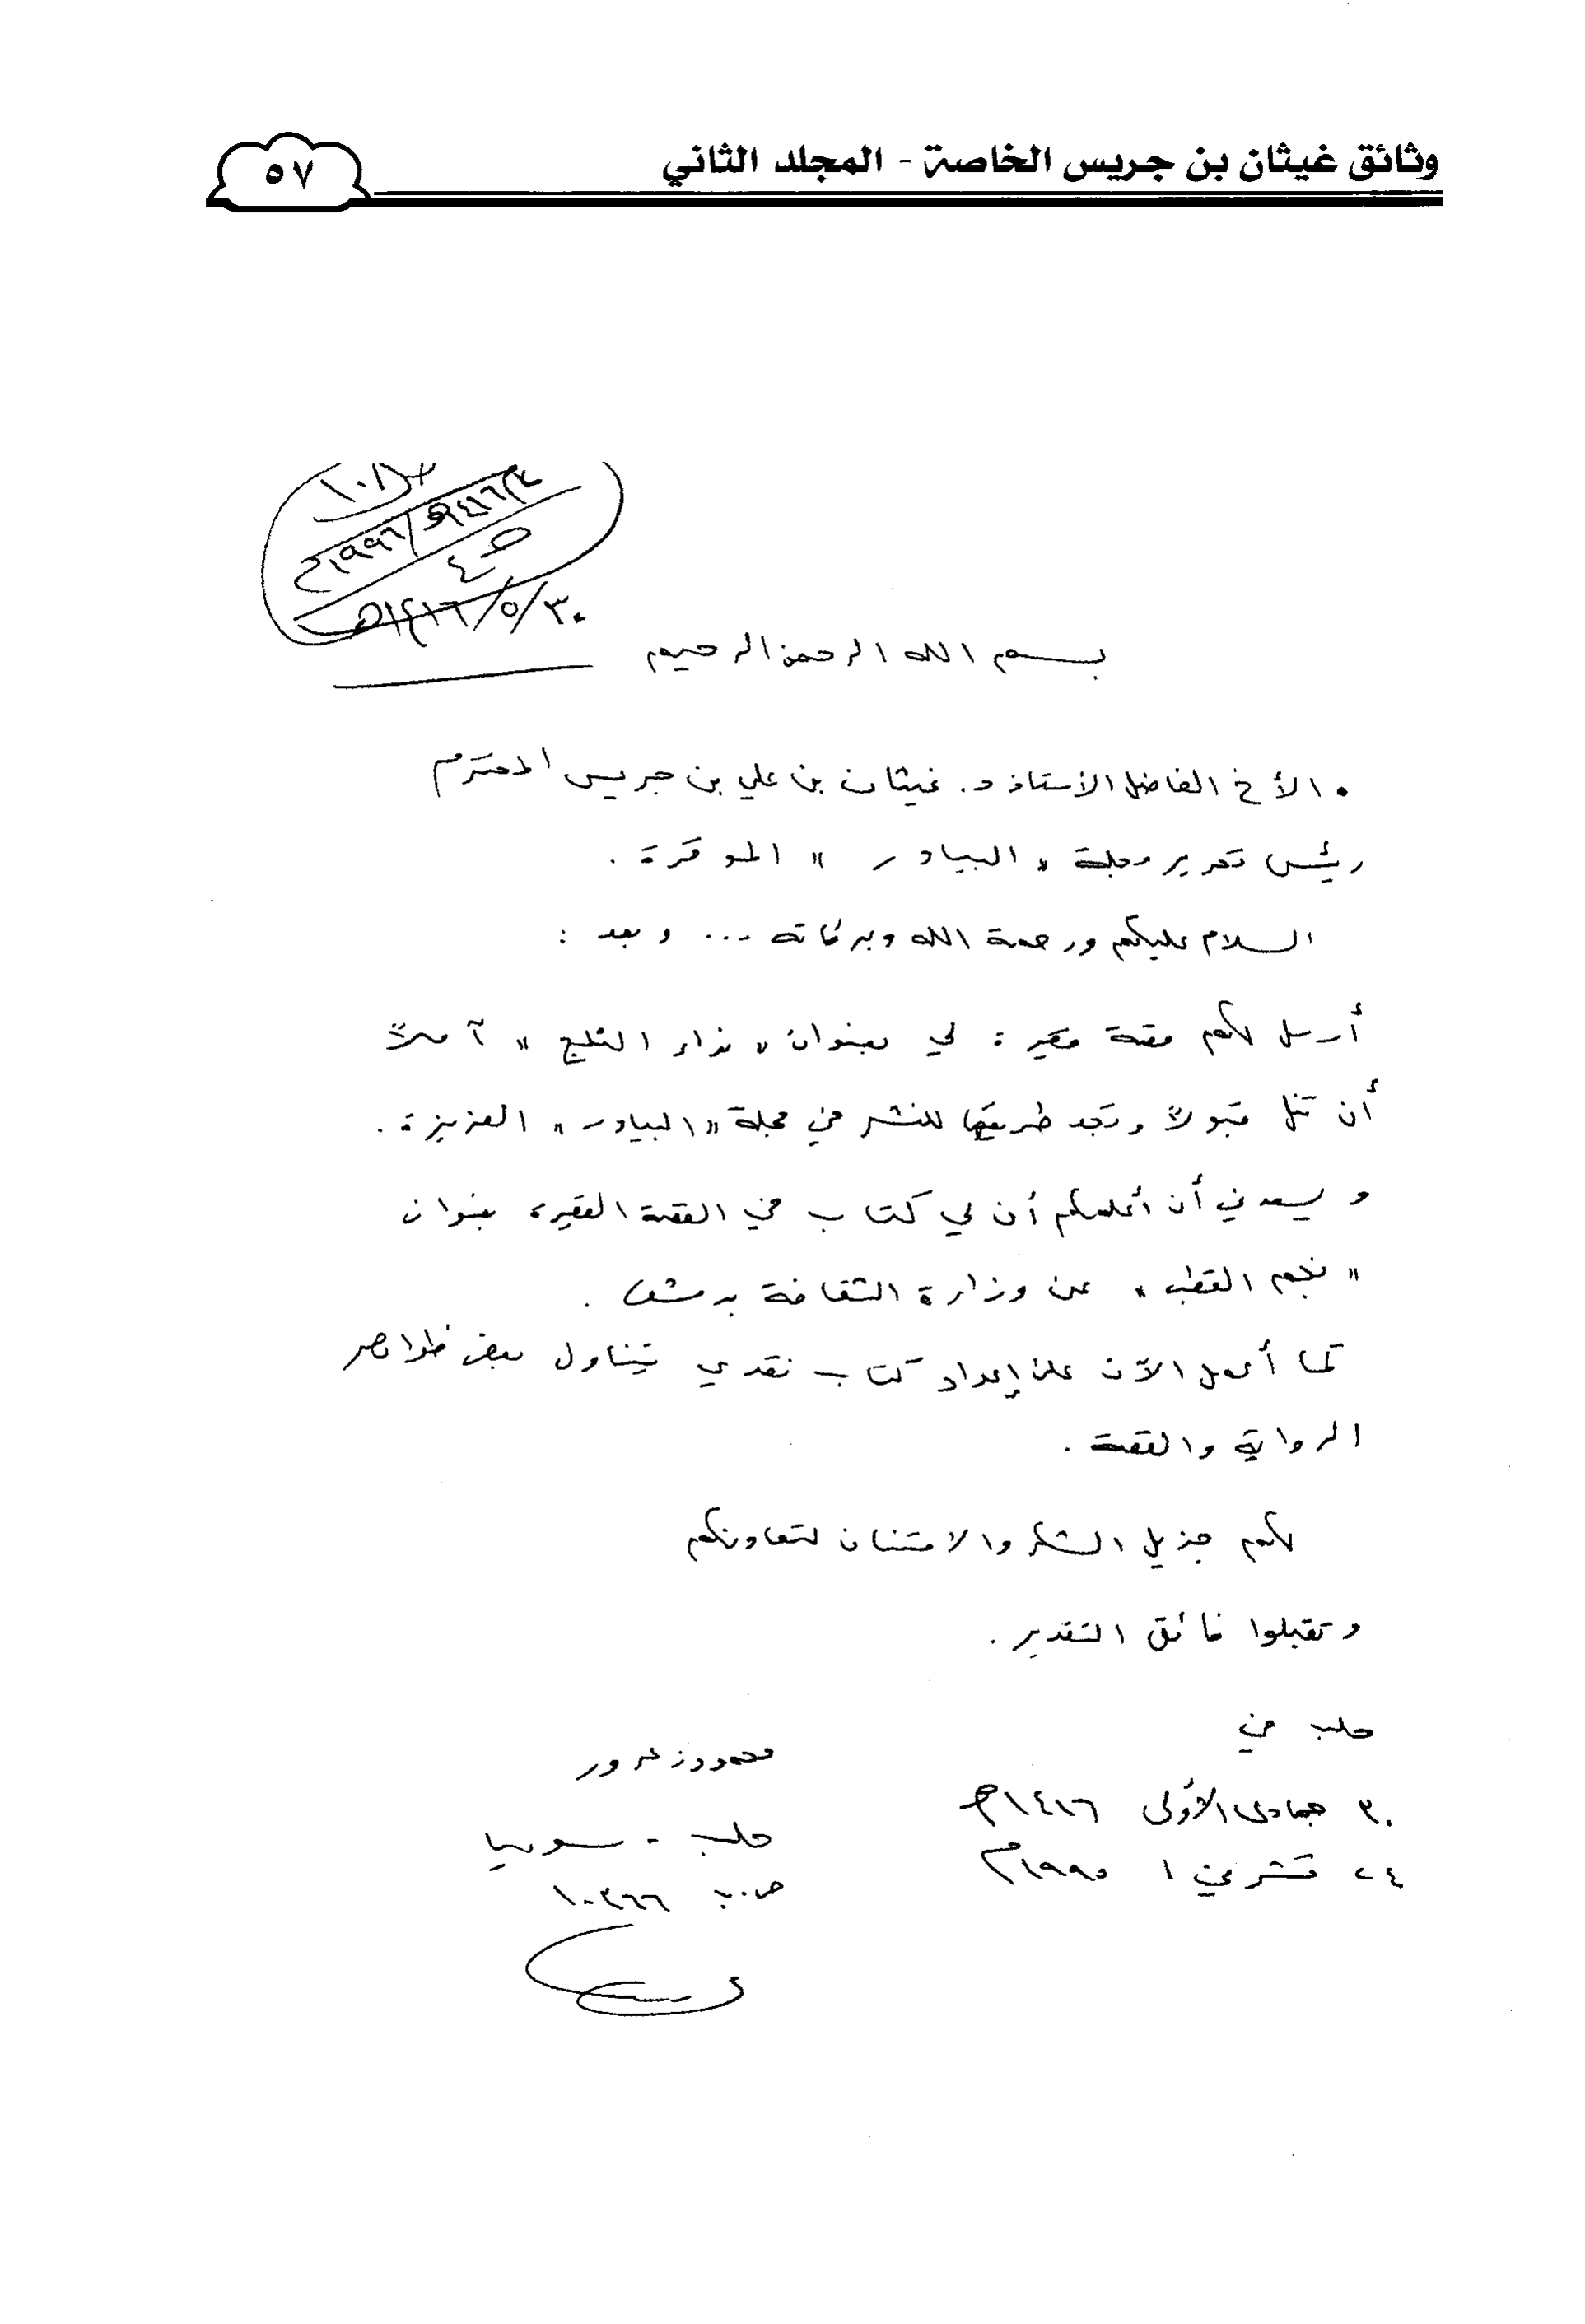 وثائق غيثان بن جريس الخاصة - المجلد الثاني
٥٧
١٤١٦هـ/١٩٩٦م
٤
٣٠/٥/١٤١٦هـ
بسم الله الرحمن الرحيم
• الأخ الفاضل الأستاذ د. غيثان بن علي بن جريس المحترم
رئيس تحرير مجلة " البيادر " الموقرة .
السلام عليكم ورحمة الله وبركاته ... وبعد :
أرسل لكم قصة قصيرة لي بعنوان " نداء الثلج " آملاً
أن تنل قبولاً وتجد طريقها للنشر في مجلة " البيادر " العزيزة .
ويسعدني أن أعلمكم أن لي كتاب في القصة القصيرة بعنوان
" نجم القطب " عن وزارة الثقافة بدمشق .
كما أعمل الآن على إعداد كتاب نقدي يتناول بعض ظواهر
الرواية والقصة .
لكم جزيل الشكر والامتنان لتعاونكم
وتقبلوا فائق التقدير .
حلب في
٣٠ جمادى الأولى ١٤١٦هـ
٢٤ تشرين ١ ١٩٩٥م
محمود زعرور
حلب - سوريا
ص.ب ١٠٣٦٦